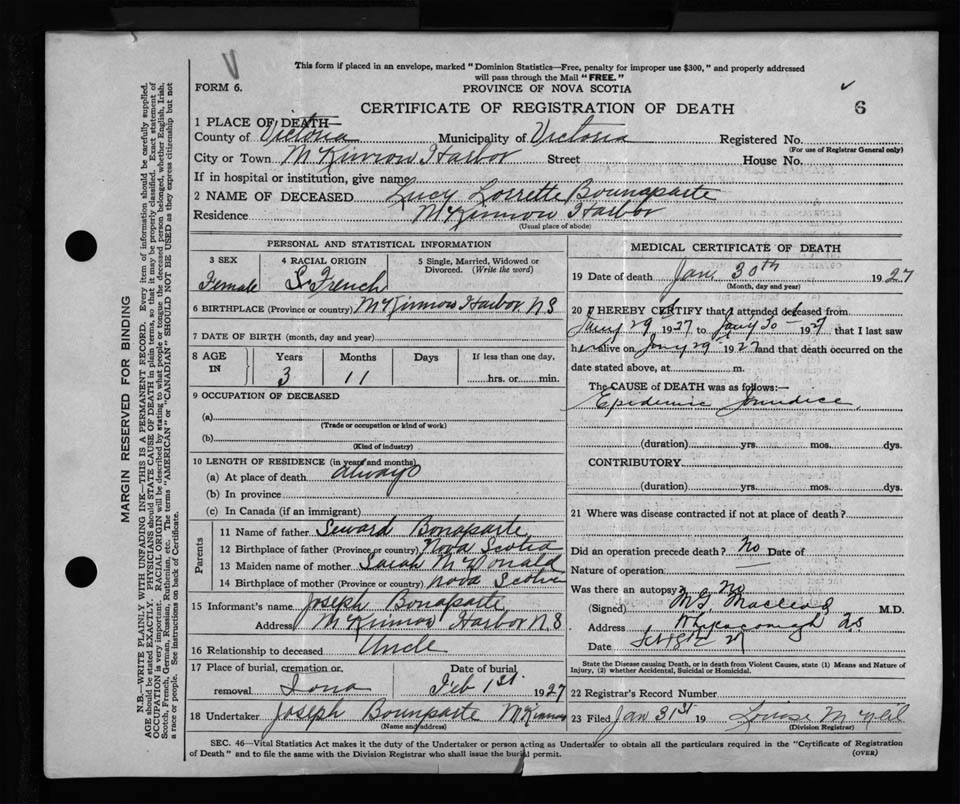 This form if placed in an envelope, marked "Dominion Statistics—Free, penalty for improper use $300," and properly addressed
will pass through the Mail "FREE."
FORM 6.
PROVINCE OF NOVA SCOTIA
CERTIFICATE OF REGISTRATION OF DEATH
6
1 PLACE OF DEATH—
County of Victoria Municipality of Victoria Registered No.
(For use of Registrar General only)
City or Town McKinnow Harbor Street House No.
If in hospital or institution, give name
2 NAME OF DECEASED Lucy Lorrette Bounaparte
Residence McKinnow Harbor
(Usual place of abode)
PERSONAL AND STATISTICAL INFORMATION
3 SEX 4 RACIAL ORIGIN 5 Single, Married, Widowed or
Divorced. (Write the word)
Female S French
6 BIRTHPLACE (Province or country) McKinnow Harbor N S
7 DATE OF BIRTH (month, day and year)
8 AGE IN Years Months Days If less than one day,
3 11 hrs. or min.
9 OCCUPATION OF DECEASED
(a)
(Trade or occupation or kind of work)
(b)
(Kind of industry)
10 LENGTH OF RESIDENCE (in years and months)
(a) At place of death always
(b) In province
(c) In Canada (if an immigrant)
Parents
11 Name of father Seward Bonaparte
12 Birthplace of father (Province or country) Nova Scotia
13 Maiden name of mother Sarah McDonald
14 Birthplace of mother (Province or country) Nova Scotia
15 Informant's name Joseph Bonaparte
Address McKinnow Harbor N S
16 Relationship to deceased Uncle
17 Place of burial, cremation or Date of burial
removal Iona Feb 1st 1927
18 Undertaker Joseph Bounparte McKinnow
(Name and address)
MEDICAL CERTIFICATE OF DEATH
19 Date of death Jany 30th 1927
(Month, day and year)
20 I HEREBY CERTIFY that I attended deceased from
Jany 29 1927 to Jany 30 1927, that I last saw
her alive on Jany 29 1927 and that death occurred on the
date stated above, at m.
The CAUSE of DEATH was as follows:—
Epidemic Jaundice
(duration) yrs. mos. dys.
CONTRIBUTORY
(duration) yrs. mos. dys.
21 Where was disease contracted if not at place of death?
Did an operation precede death? No Date of
Nature of operation
Was there an autopsy? No
(Signed) Macleod M.D.
Address Whycocomagh
Date 27
State the Disease causing Death, or in death from Violent Causes, state (1) Means and Nature of
Injury, (2) whether Accidental, Suicidal or Homicidal.
22 Registrar's Record Number
23 Filed Jan 31st 19 Louise McNeil
(Division Registrar)
SEC. 46—Vital Statistics Act makes it the duty of the Undertaker or person acting as Undertaker to obtain all the particulars required in the "Certificate of Registration
of Death" and to file the same with the Division Registrar who shall issue the burial permit. (OVER)
MARGIN RESERVED FOR BINDING
N.B.—WRITE PLAINLY WITH UNFADING INK—THIS IS A PERMANENT RECORD. Every item of information should be carefully supplied.
AGE should be stated EXACTLY. PHYSICIANS should STATE CAUSE OF DEATH in plain terms, so that it may be properly classified. Exact statement of
OCCUPATION is very important. RACIAL ORIGIN will be described by stating to what people or tongue the deceased person belonged, whether English, Irish,
Scotch, French, German, Russian, Ruthenian, etc. The terms "AMERICAN" or "CANADIAN" SHOULD NOT BE USED as they express citizenship but not
a race or people. See instructions on back of Certificate.